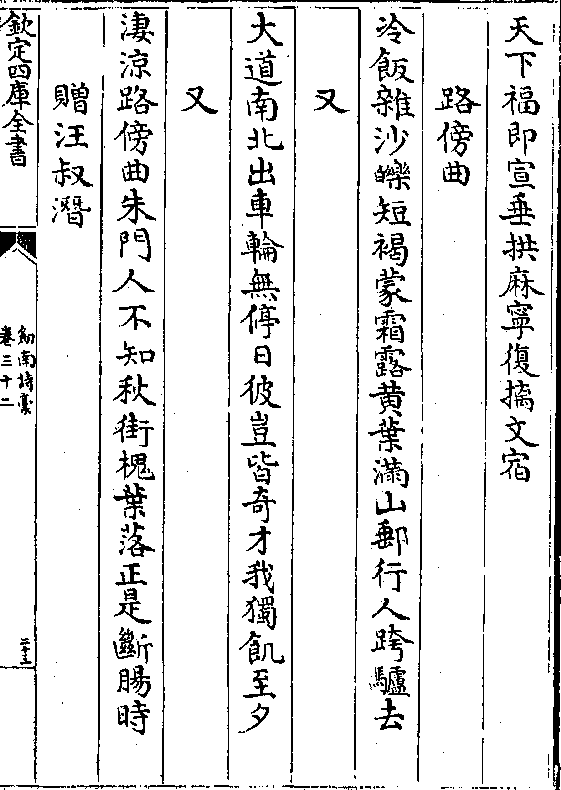 天下福即宣垂拱麻寧復摛文宿
路傍曲
冷飯雜沙礫短褐蒙霜露黄葉滿山郵行人跨驢去
又
大道南北出車輪無停日彼豈皆奇才我獨飢至夕
又
淒涼路傍曲朱門人不知秋街槐葉落正是斷腸時
贈汪叔潛
欽定四庫全書
劒南詩藁
卷三十二
二十三